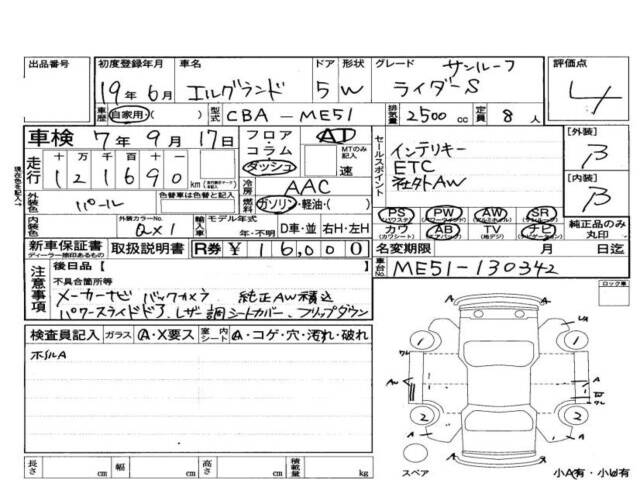 出品番号 初度登録年月 車名 ドア 形状 グレード サンルーフ 評価点
19年6月 エルグランド 5 W ライダーS 4
車歴 自家用・( ) 型式 CBA-ME51 排気量 2500cc 定員 8人
車検 7年9月17日 フロア・コラム・ダッシュ AT MTのみ記入 速
セールスポイント インテリキー [外装] B
走行 十 万 千 百 十 一
121690 km
ETC
社外AW [内装] B
冷房 AAC
外装色 パール 色替車は色替と記入 燃料 ガソリン・軽油・( )
PS (パワステ) PW (パワーウインド) AW (アルミホイル) SR (サンルーフ) 純正品のみ丸印
内装色 外装カラーNo. QX1 輸入車 モデル年式 年・不明 D車・並 右H・左H
カワ (カワシート) AB (エアバック) TV (地デジ) ナビ (ナビゲーション)
新車保証書 ディーラー捺印あるもの 取扱説明書 R券 ¥16,000 名変期限 月 日迄
注意事項 後日品[ ] 車台No. ME51-130342
不具合箇所等
メーカーナビ バックカメラ 純正AW積込
パワースライドドア、レザー調シートカバー、フリップダウン
ロック車
検査員記入 ガラス A・X要ス 室内シート A・コゲ・穴・汚れ・破れ
ホイルA
1 1
AW A
A
W
2 2
A A
スペア 小A有・小U有
長さ cm 幅 cm 高さ cm 積載量 kg